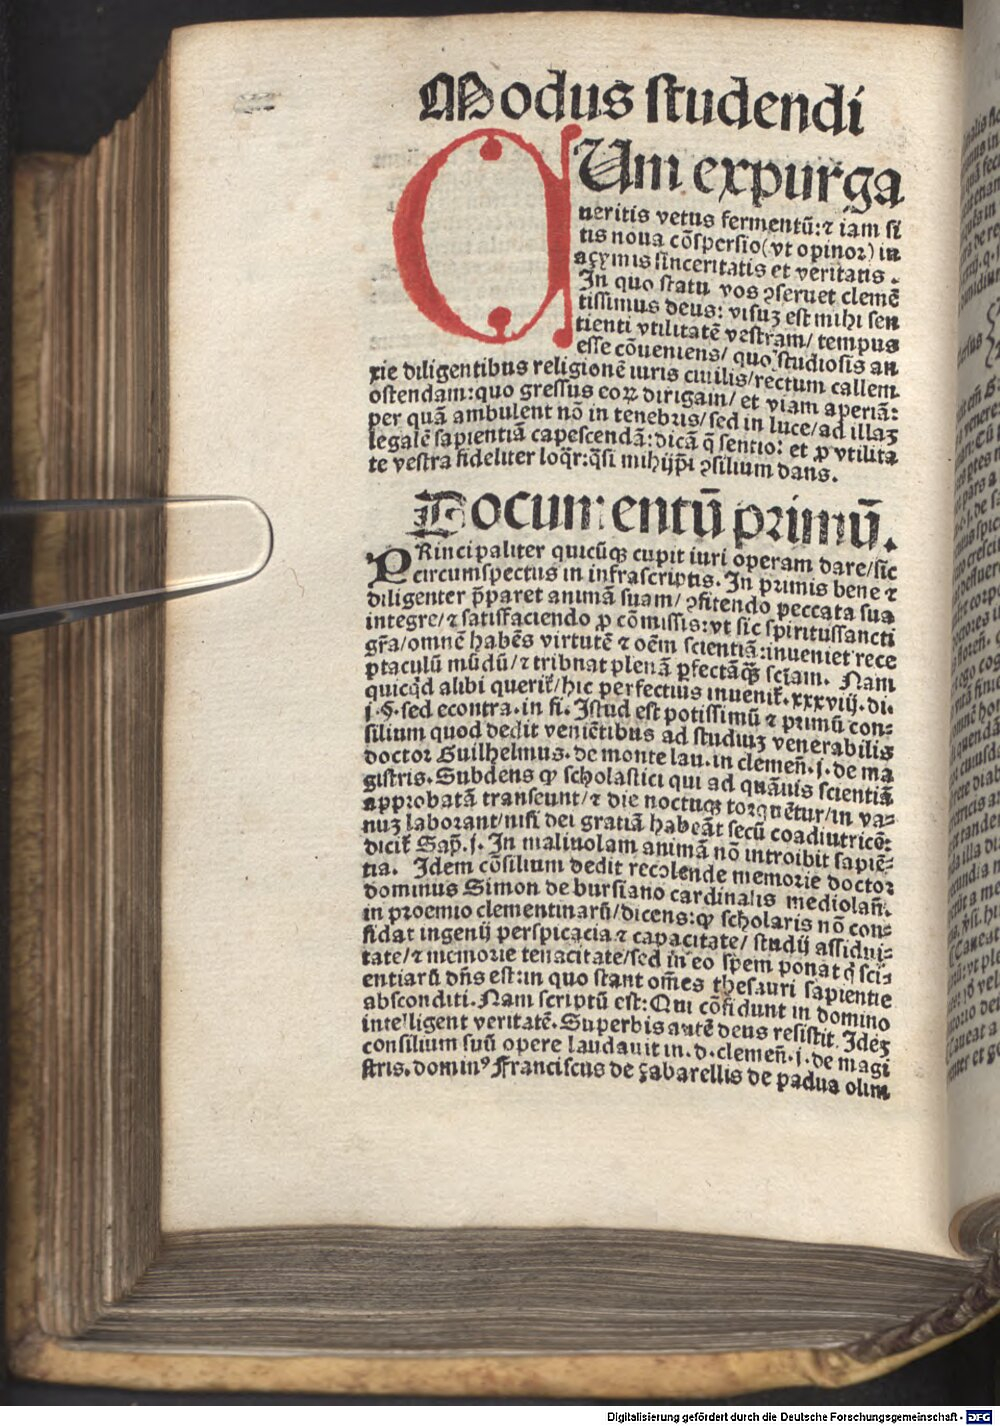 Modus studendi
CUm expurga
ueritis vetus fermentū:⁊ iam si
tis noua cōspersio(vt opinor) in
açymis sinceritatis et veritatis.
In quo statu vos ꝯseruet clemē
tissimus deus: visuȝ est mihi sen
tienti vtilitatē vestram/ tempus
esse cōueniens/ quo studiosis an
xie diligentibus religionē iuris ciuilis/rectum callem
ostendam:quo gressus eoꝝ dirigam/ et viam aperiā:
per quā ambulent nō in tenebris/sed in luce/ad illaȝ
legalē sapientiā capescendā:dicā q̄ sentio: et ꝓ vtilita
te vestra fideliter loq̄r:q̄si mihijp̄i ꝯsilium dans.
Documentū primū.
PRincipaliter quicūqȝ cupit iuri operam dare/sic
circumspectus in infrascriptis. In primis bene ⁊
diligenter p̄paret animā suam/ ꝯfitendo peccata sua
integre/⁊ satisfaciendo ꝓ cōmissis:vt sic spiritussancti
gr̄a/omnē habēs virtutē ⁊ oēm scientiā:inueniet rece
ptaculū mūdū/⁊ tribuat plenā ꝑfectāqȝ sciam. Nam
quicq̄d alibi querit̄/hic perfectius inuenit̄.xxxviij.di.
j.§.sed econtra.in fi. Istud est potissimū ⁊ primū con-
silium quod dedit veniētibus ad studiuȝ venerabilis
doctor Guilhelmus.de monte lau.in clemen̄.j.de ma
gistris.Subdens ꝙ scholastici qui ad quāuis scientiā
approbatā transeunt/⁊ die noctuqȝ torquētur/in va-
nuȝ laborant/nisi dei gratiā habeāt secū coadiutricē:
dicit̄ Sap̄.j. In maliuolam animā nō introibit sapiē-
tia. Idem cōsilium dedit recolende memorie doctor
dominus Simon de bursiano cardinalis mediolan̄.
in proemio clementinarū/dicens:ꝙ scholaris nō con-
fidat ingenij perspicacia ⁊ capacitate/ studij assidui-
tate/⁊ memorie tenacitate/sed in eo spem ponat q̄ sci-
entiarū dn̄s est:in quo stant om̄es thesauri sapientie
absconditi.Nam scriptū est:Qui cōfidunt in domino
intelligent veritatē.Superbis autē deus resistit. Ideȝ
consilium suū opere laudauit in.d.clemen̄.j.de magi
stris.dominꝰ Franciscus de çabarellis de padua olim
Digitalisierung gefördert durch die Deutsche Forschungsgemeinschaft - DFG